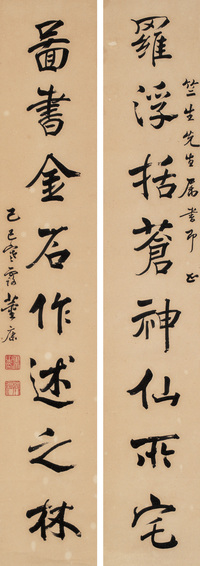 竺生先生属书即正
羅浮括蒼神仙所宅
圖書金石作述之林
己巳寒露董康